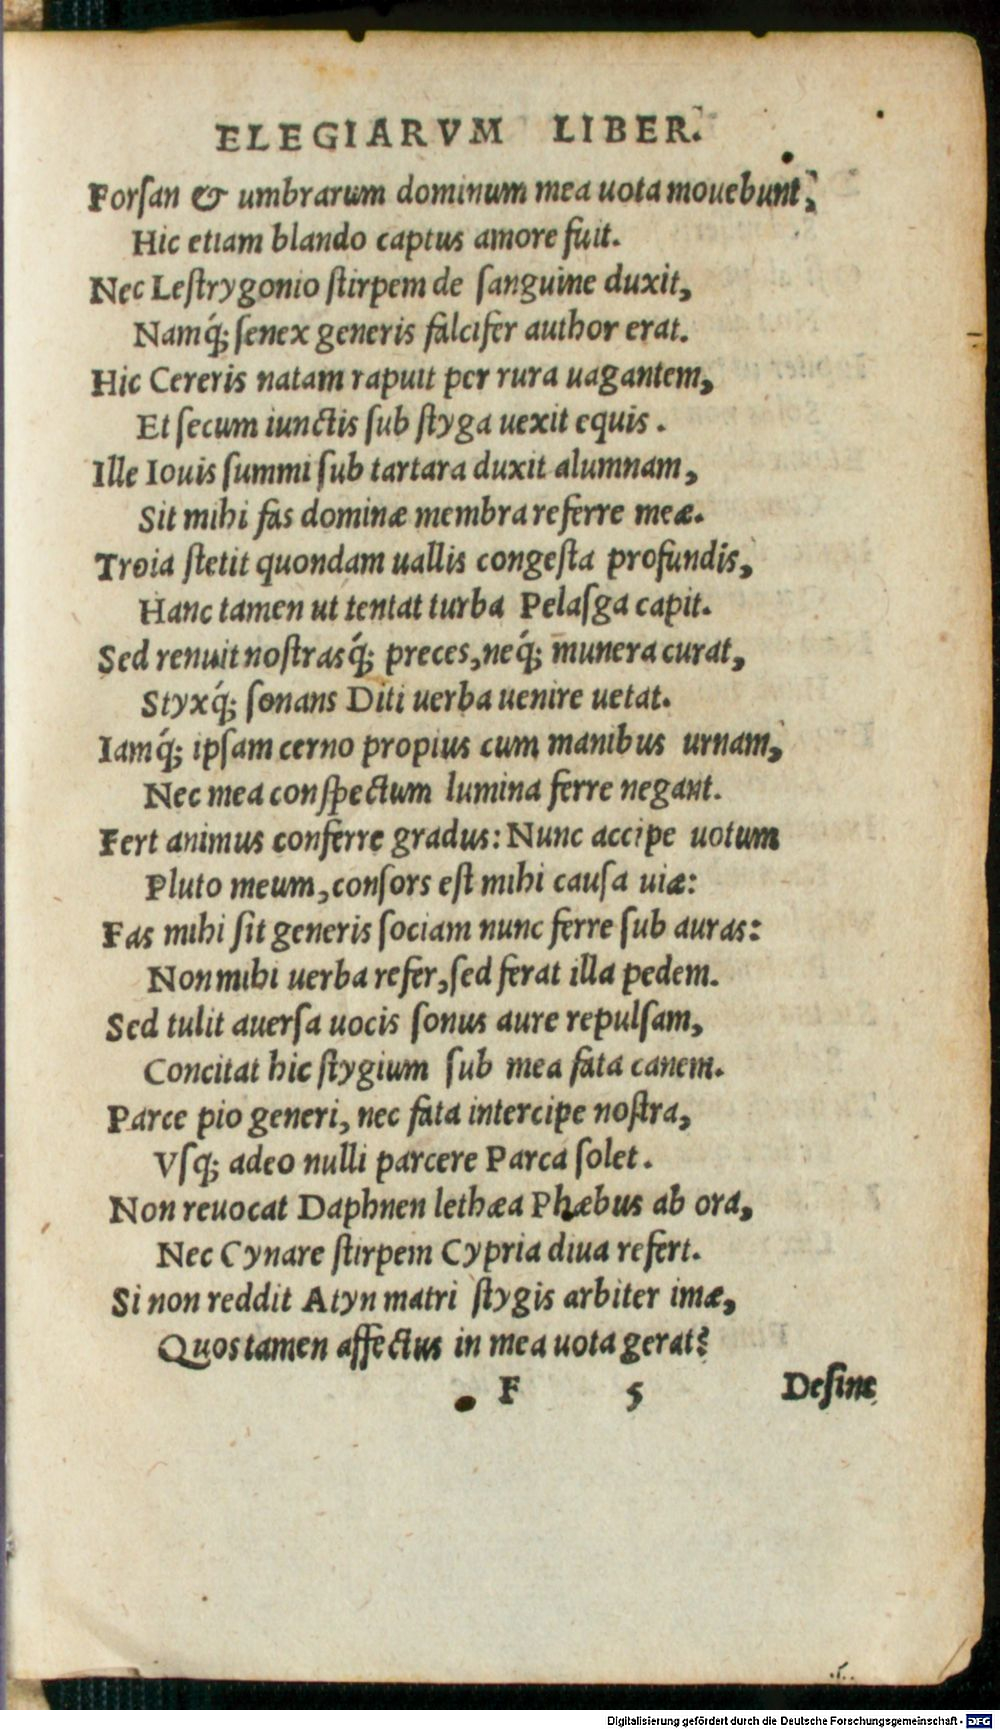 ELEGIARVM LIBER.
Forſan & umbrarum dominum mea uota mouebunt,
Hic etiam blando captus amore fuit.
Nec Leſtrygonio ſtirpem de ſanguine duxit,
Namq́; ſenex generis falcifer author erat.
Hic Cereris natam rapuit per rura uagantem,
Et ſecum iunctis ſub ſtyga uexit equis.
Ille Iouis ſummi ſub tartara duxit alumnam,
Sit mihi fas dominæ membra referre meæ.
Troia ſtetit quondam uallis congeſta profundis,
Hanc tamen ut tentat turba Pelaſga capit.
Sed renuit noſtrasq́; preces, neq́; munera curat,
Styxq́; ſonans Diti uerba uenire uetat.
Iamq́; ipſam cerno propius cum manibus urnam,
Nec mea conſpectum lumina ferre negant.
Fert animus conferre gradus: Nunc accipe uotum
Pluto meum, conſors eſt mihi cauſa uiæ:
Fas mihi ſit generis ſociam nunc ferre ſub auras:
Non mihi uerba refer, ſed ferat illa pedem.
Sed tulit auerſa uocis ſonus aure repulſam,
Concitat hic ſtygium ſub mea fata canem.
Parce pio generi, nec fata intercipe noſtra,
Vſq; adeo nulli parcere Parca ſolet.
Non reuocat Daphnen lethæa Phæbus ab ora,
Nec Cynare ſtirpem Cypria diua refert.
Si non reddit Atyn matri ſtygis arbiter imæ,
Quos tamen affectus in mea uota gerat?
F 5 Deſine
Digitalisierung gefördert durch die Deutsche Forschungsgemeinschaft - DFG